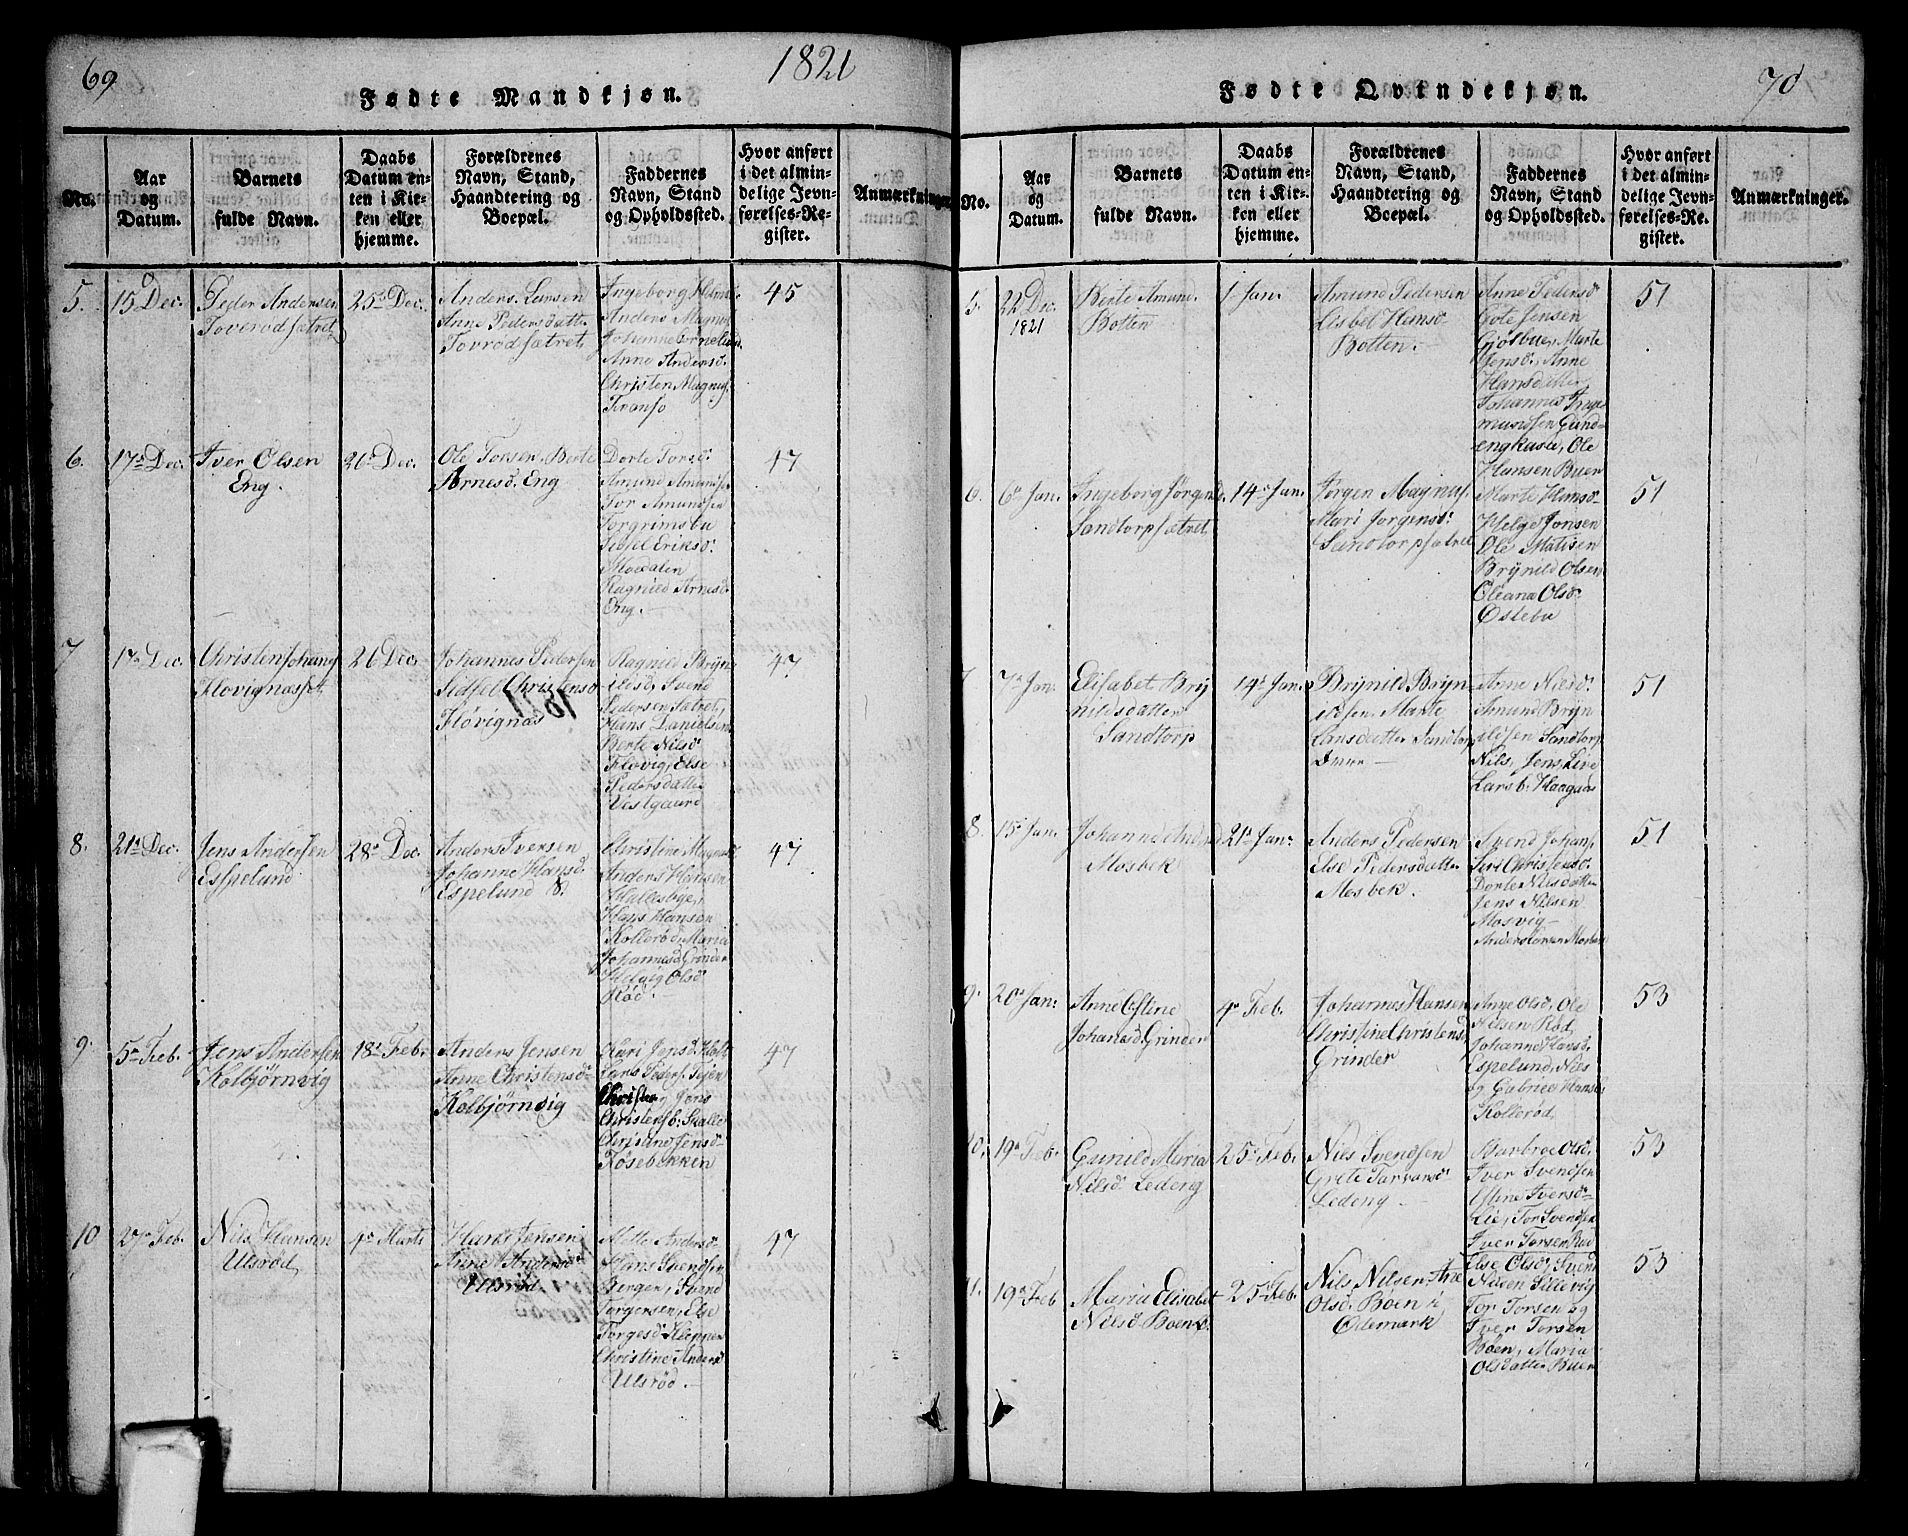 69
1821
Fødte Mandkjøn.
No.
Aar
og
Datum.
Barnets
fulde Navn.
Daabs
Datum en-
ten i Kir-
ken eller
hjemme.
Forældrenes
Navn, Stand,
Haandtering og
Boepæl.
Faddernes
Navn, Stand
og Opholdssted.
Hvor anført
i det almin-
delige Jevn-
førelses-Re-
gister.
Anmærkninger
5.
15 Dec.
Peder Andersen
Toverødsætret
25 Dec.
Anders Larsen
Anne Pedersdatt.
Tovrødsætret
Ingeborg
Anders Magnus
Johannes Cornelius
Anne Andersd.
Christen Magnus
45
6.
17 Dec.
Iver Olsen
Eng.
26 Dec.
Ole Torsen. Berte
Arnesd. Eng
Dorte Torsd.
Amund Amunds
Tor Amundsen
Torgrimsbu
Sidsel Eriksd.
Moedalen
Ragnild Arnesd.
Eng.
47
7
17 Dec.
Christen Johans
Flovignæsset
26 Dec.
Johannes Pedersen
Sidsel Christensd
Flövignæs
1821
Ragnild Bryn
ildsd, Svend
Pedersen Sætret,
Hans Danielsen
Berte Nilsd
Flovig, Else
Pedersdatter
Vestgaard
47
8.
21 Dec.
Jens Andersen
Espelund
28 Dec.
Anders Iversen
Johanne Hansd.
Espelund 8.
Christine Magnus
Anders Hansen
Hallesbye,
Hans Hansen
Kollerød, Maria
Johannesd Grinder
Helvig Olsd
Rød.
47
9.
5 Feb.
Jens Andersen
Kolbjørnvig
18 Febr
Anders Jensen
Anne Christensd
Kolbjørnvig
Kari Jensd. Holt
Lars Peders. Tejen
Christen Jens
Christensb. Skalle
Christine Jensd
Fösebekken
47
10
27 Feb.
Nils Hansen
Ulsrød
4 Marti
Hans Jensen
Anne Andersd
Ulsrød
Mette Andersd
Hans Svendsen
Bergen, Svend
Torgersen, Else
Torgesd Klippen
Christine Andersd
Ulsrød.
47
70
Fødte Qvindekjøn.
No.
Aar
og
Datum.
Barnets
fulde Navn.
Daabs
Datum en-
ten i Kir-
ken eller
hjemme.
Forældrenes
Navn, Stand,
Haandtering og
Boepæl.
Faddernes
Navn, Stand
og Opholdssted.
Hvor anført
i det almin-
delige Jevn-
førelses-Re-
gister.
Anmærkninger.
5.
22 Dec.
1821
Berte Amund
Botten
1 Jan.
Amund Pedersen
Lisbet Hansd
Botten.
Anne Pedersd
Gote Jensen
Gjølbue, Marte
Jensd, Anne
Hansdatter
Johannes Inge
mundsen Gund
engkaste, Ole
Hansen Buer
51
6.
6 Jan.
Ingeborg Jørgensd.
Sandtorpsætret
14 Jan.
Jørgen Magnus.
Mari Jorgensd:
Sandtorpsætret
Marte Hansd
Helge Jonsen
Ole Matisen
Brynild Olsen
Oleana Olsd
Østebu
51
7.
7 Jan.
Elisabet Bry
nildsdatter
Sandtorp
14 Jan.
Brynild Bryn
ildsen. Marte
Larsdatter Sandtorp
Anne Nilsd.
Amund Bryn
ildsen Sandtorp
Nils, Jens, Live
Larsb. Haagaas
51
8.
15 Jan.
Johanne Andersd
Mosbek
21 Jan.
Anders Pedersen
Else Pedersdatter
Mosbek.
Svend Johans.
Siri Christensd.
Dorte Nilsdatter
Jens Nilsen
Mosvig
Anders Torsen
51
9.
20 Jan.
Anne Ostine
Johansd Grinder
4 Feb.
Johannes Hansen
Christine Christensd
Grinder
Anne Olsd. Ole
Nilsen Rød,
Johanne Hansd.
Espelund, Nils
og Gabriel Hansd
Kollerød,
53
10.
19 Feb.
Gunild Maria
Nilsd. Ledeng
25 Feb.
Nils Svendsen
Grete Tarvarsd
Ledeng
Barbroe Olsd.
Iver Svendsen
Ostine Iversd
Lie, Tor Svendsen
Iver Torsen
53
11.
19 Feb
Maria Elisabet
Nilsd Boen
25 Feb.
Nils Nilsen. Ane
Olsd. Boen i
Ødemark
Else Olsd, Svend
Nilsen Lillevig
Tor Torsen og
Iver Torsen
Böen, Maria
Olsdatter Buer
53